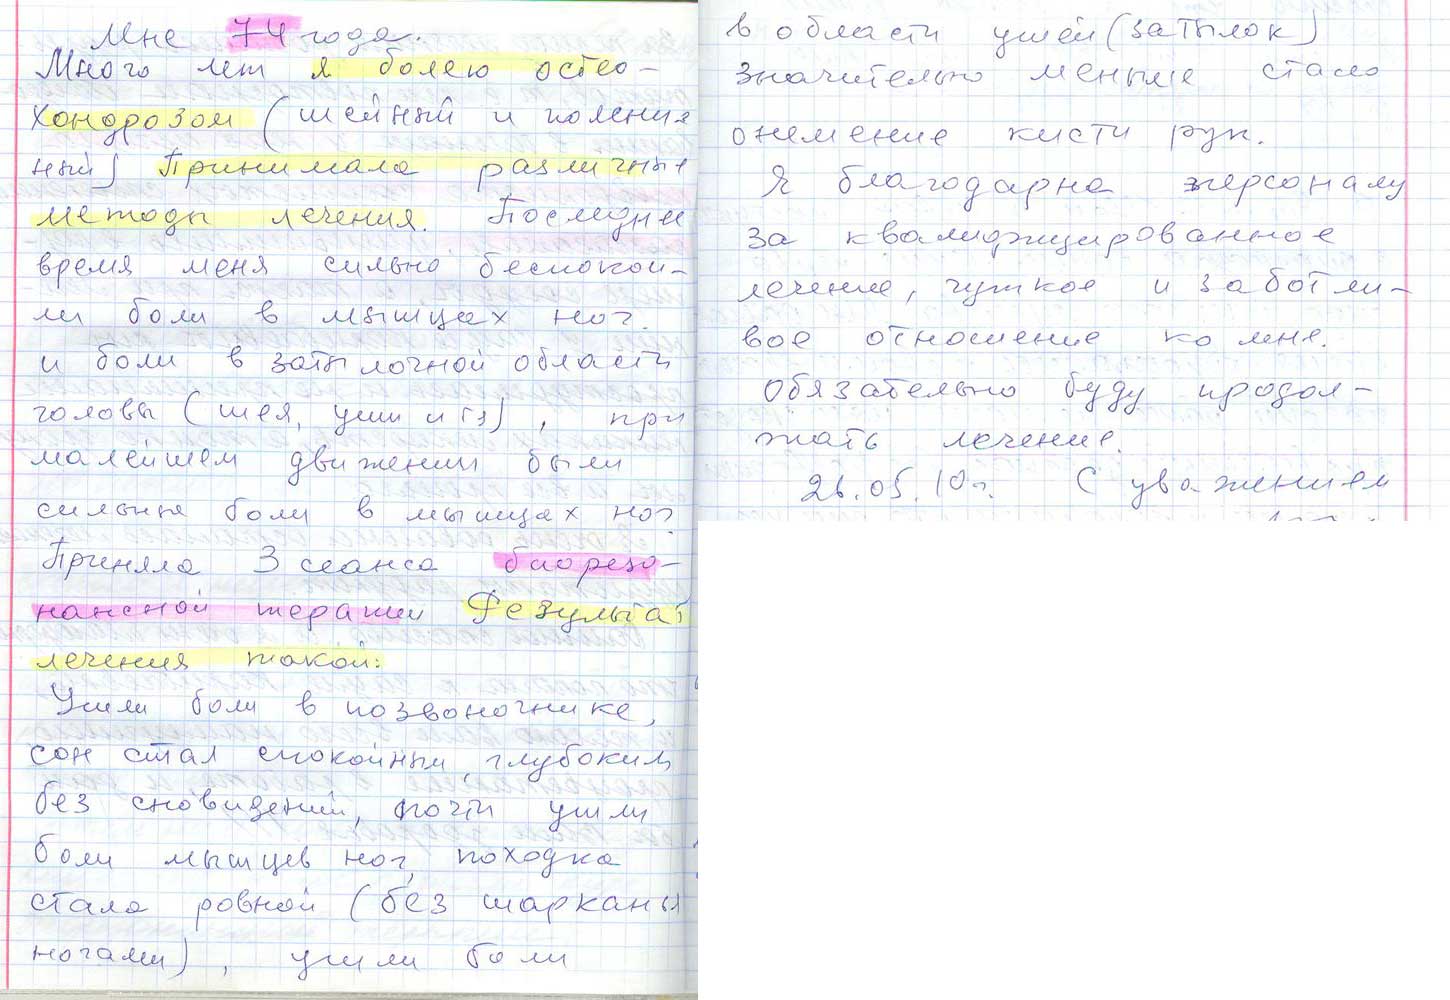 Мне 74 года.
Много лет я болею остео-
хондрозом (шейный и поясни
ный) Принимала различные
методы лечения. Последнее
время меня сильно беспокои-
ли боли в мышцах ног.
и боли в затылочной области
головы (шея, уши и гз), при
малейшем движении были
сильные боли в мышцах ног.
Приняла 3 сеанса биорезо-
нансной терапии Результат
лечения такой:
Ушли боли в позвоночнике,
сон стал спокойным, глубоким
без сновидений, почти ушли
боли мышцев ног, походка
стала ровной (без шарканья
ногами), ушли боли
в области ушей (затылок)
значительно меньше стало
онемение кисти рук.
Я благодарна персоналу
за квалифицированное
лечение, чуткое и заботли-
вое отношение ко мне.
Обязательно буду продол-
жать лечение.
26.05.10г. С уважением